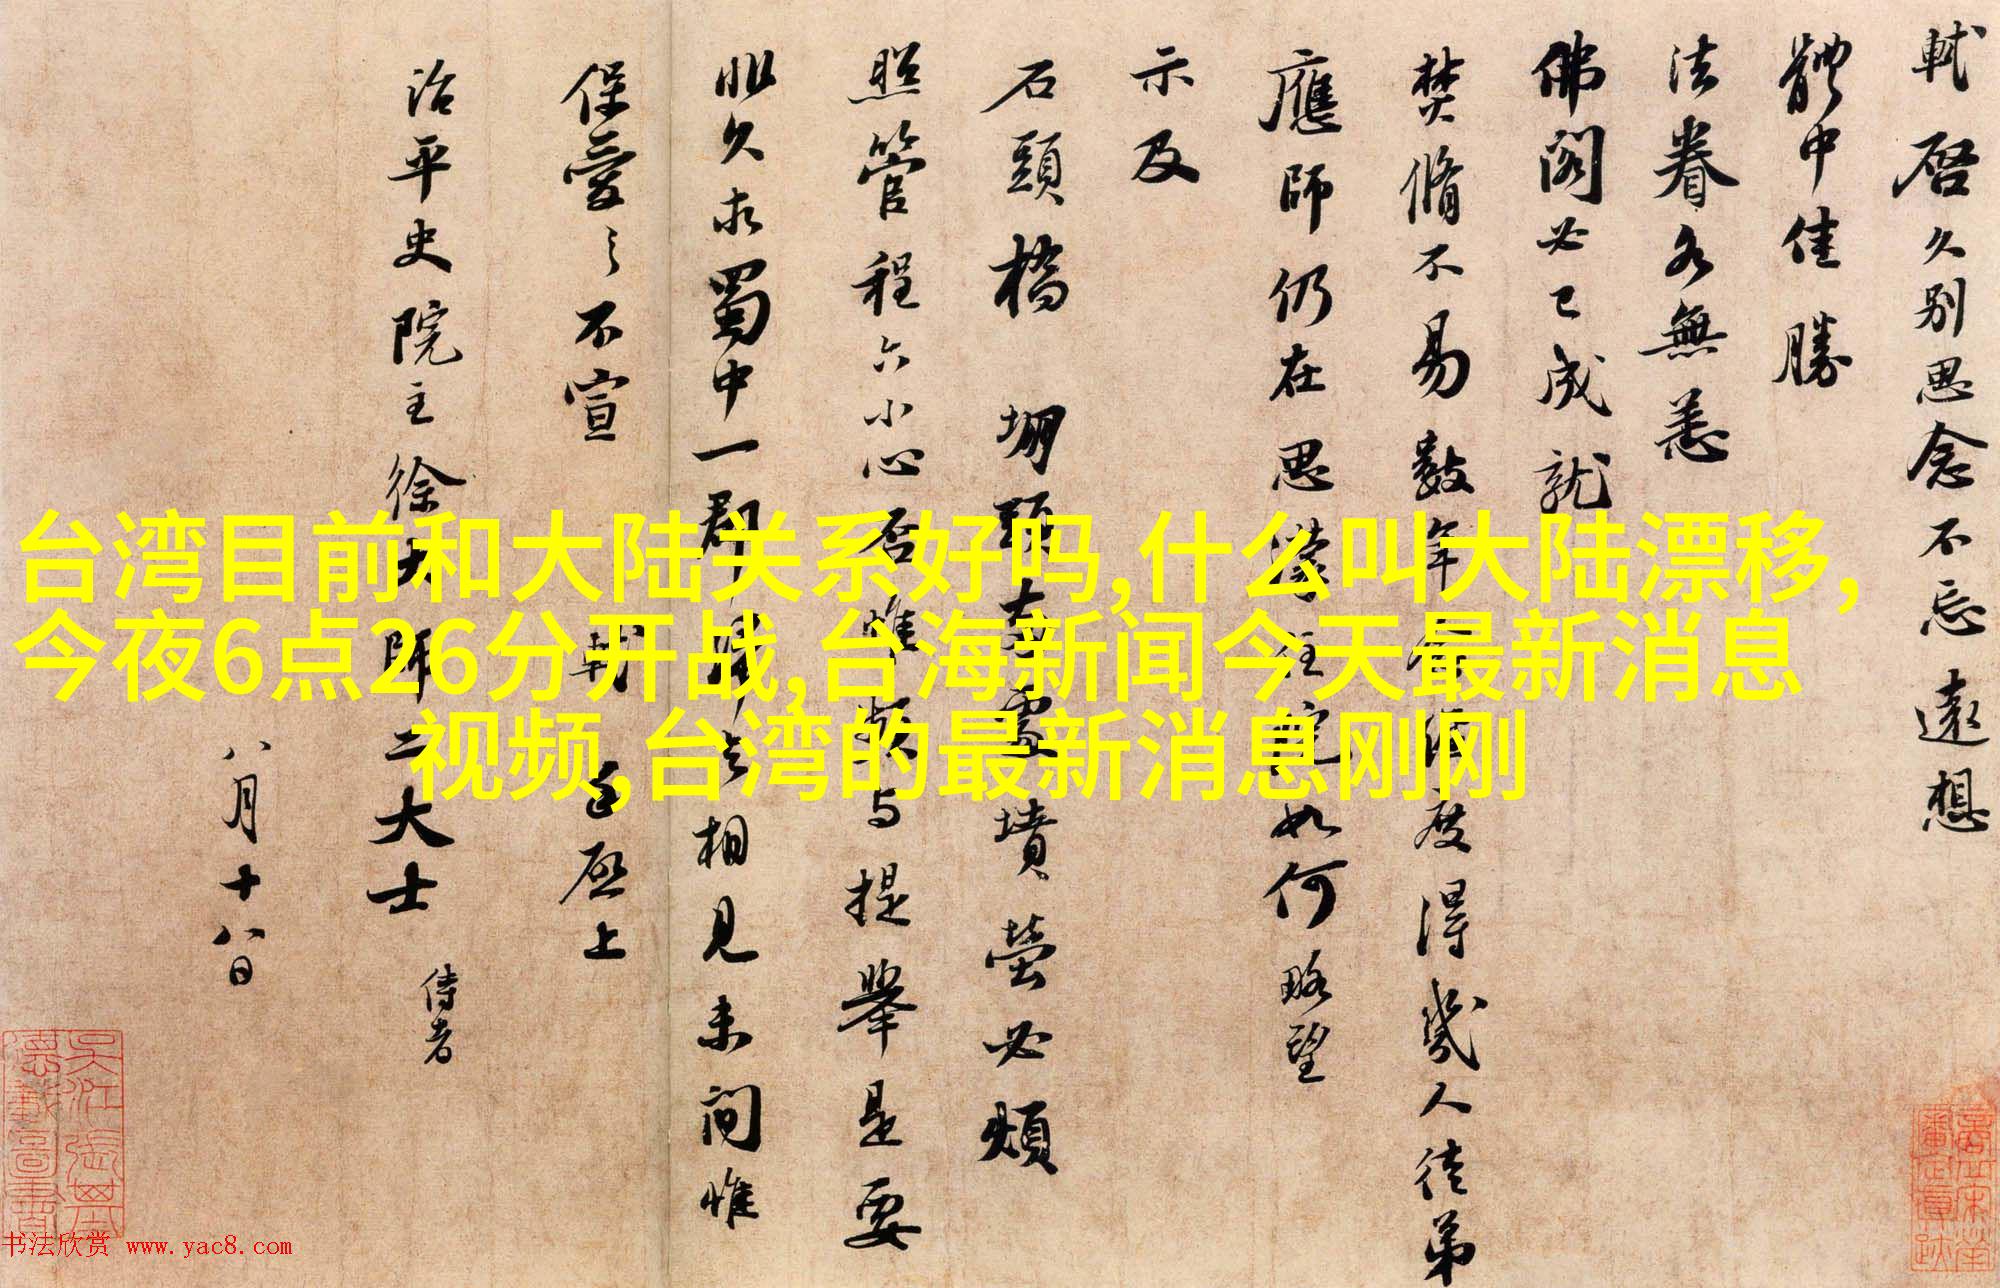 軾啓久别思念不忘遠想
體中佳勝
法眷各無恙
佛閣必已成就
焚脩不易數年念經度得幾人徒弟
應師仍在思濛住院如何略望
示及
石頭橋堋頭兩處墳塋必煩
照管程六小心否惟頻與提舉是要
非久求蜀中一郡歸去相見未間惟
保愛之不宣軾手啓上
治平史院主徐大師二大士侍者
八月十八日
台湾目前和大陆关系好吗,什么叫大陆漂移,
今夜6点26分开战,台海新闻今天最新消息
视频,台湾的最新消息刚刚
书法欣赏 www.yac8.com